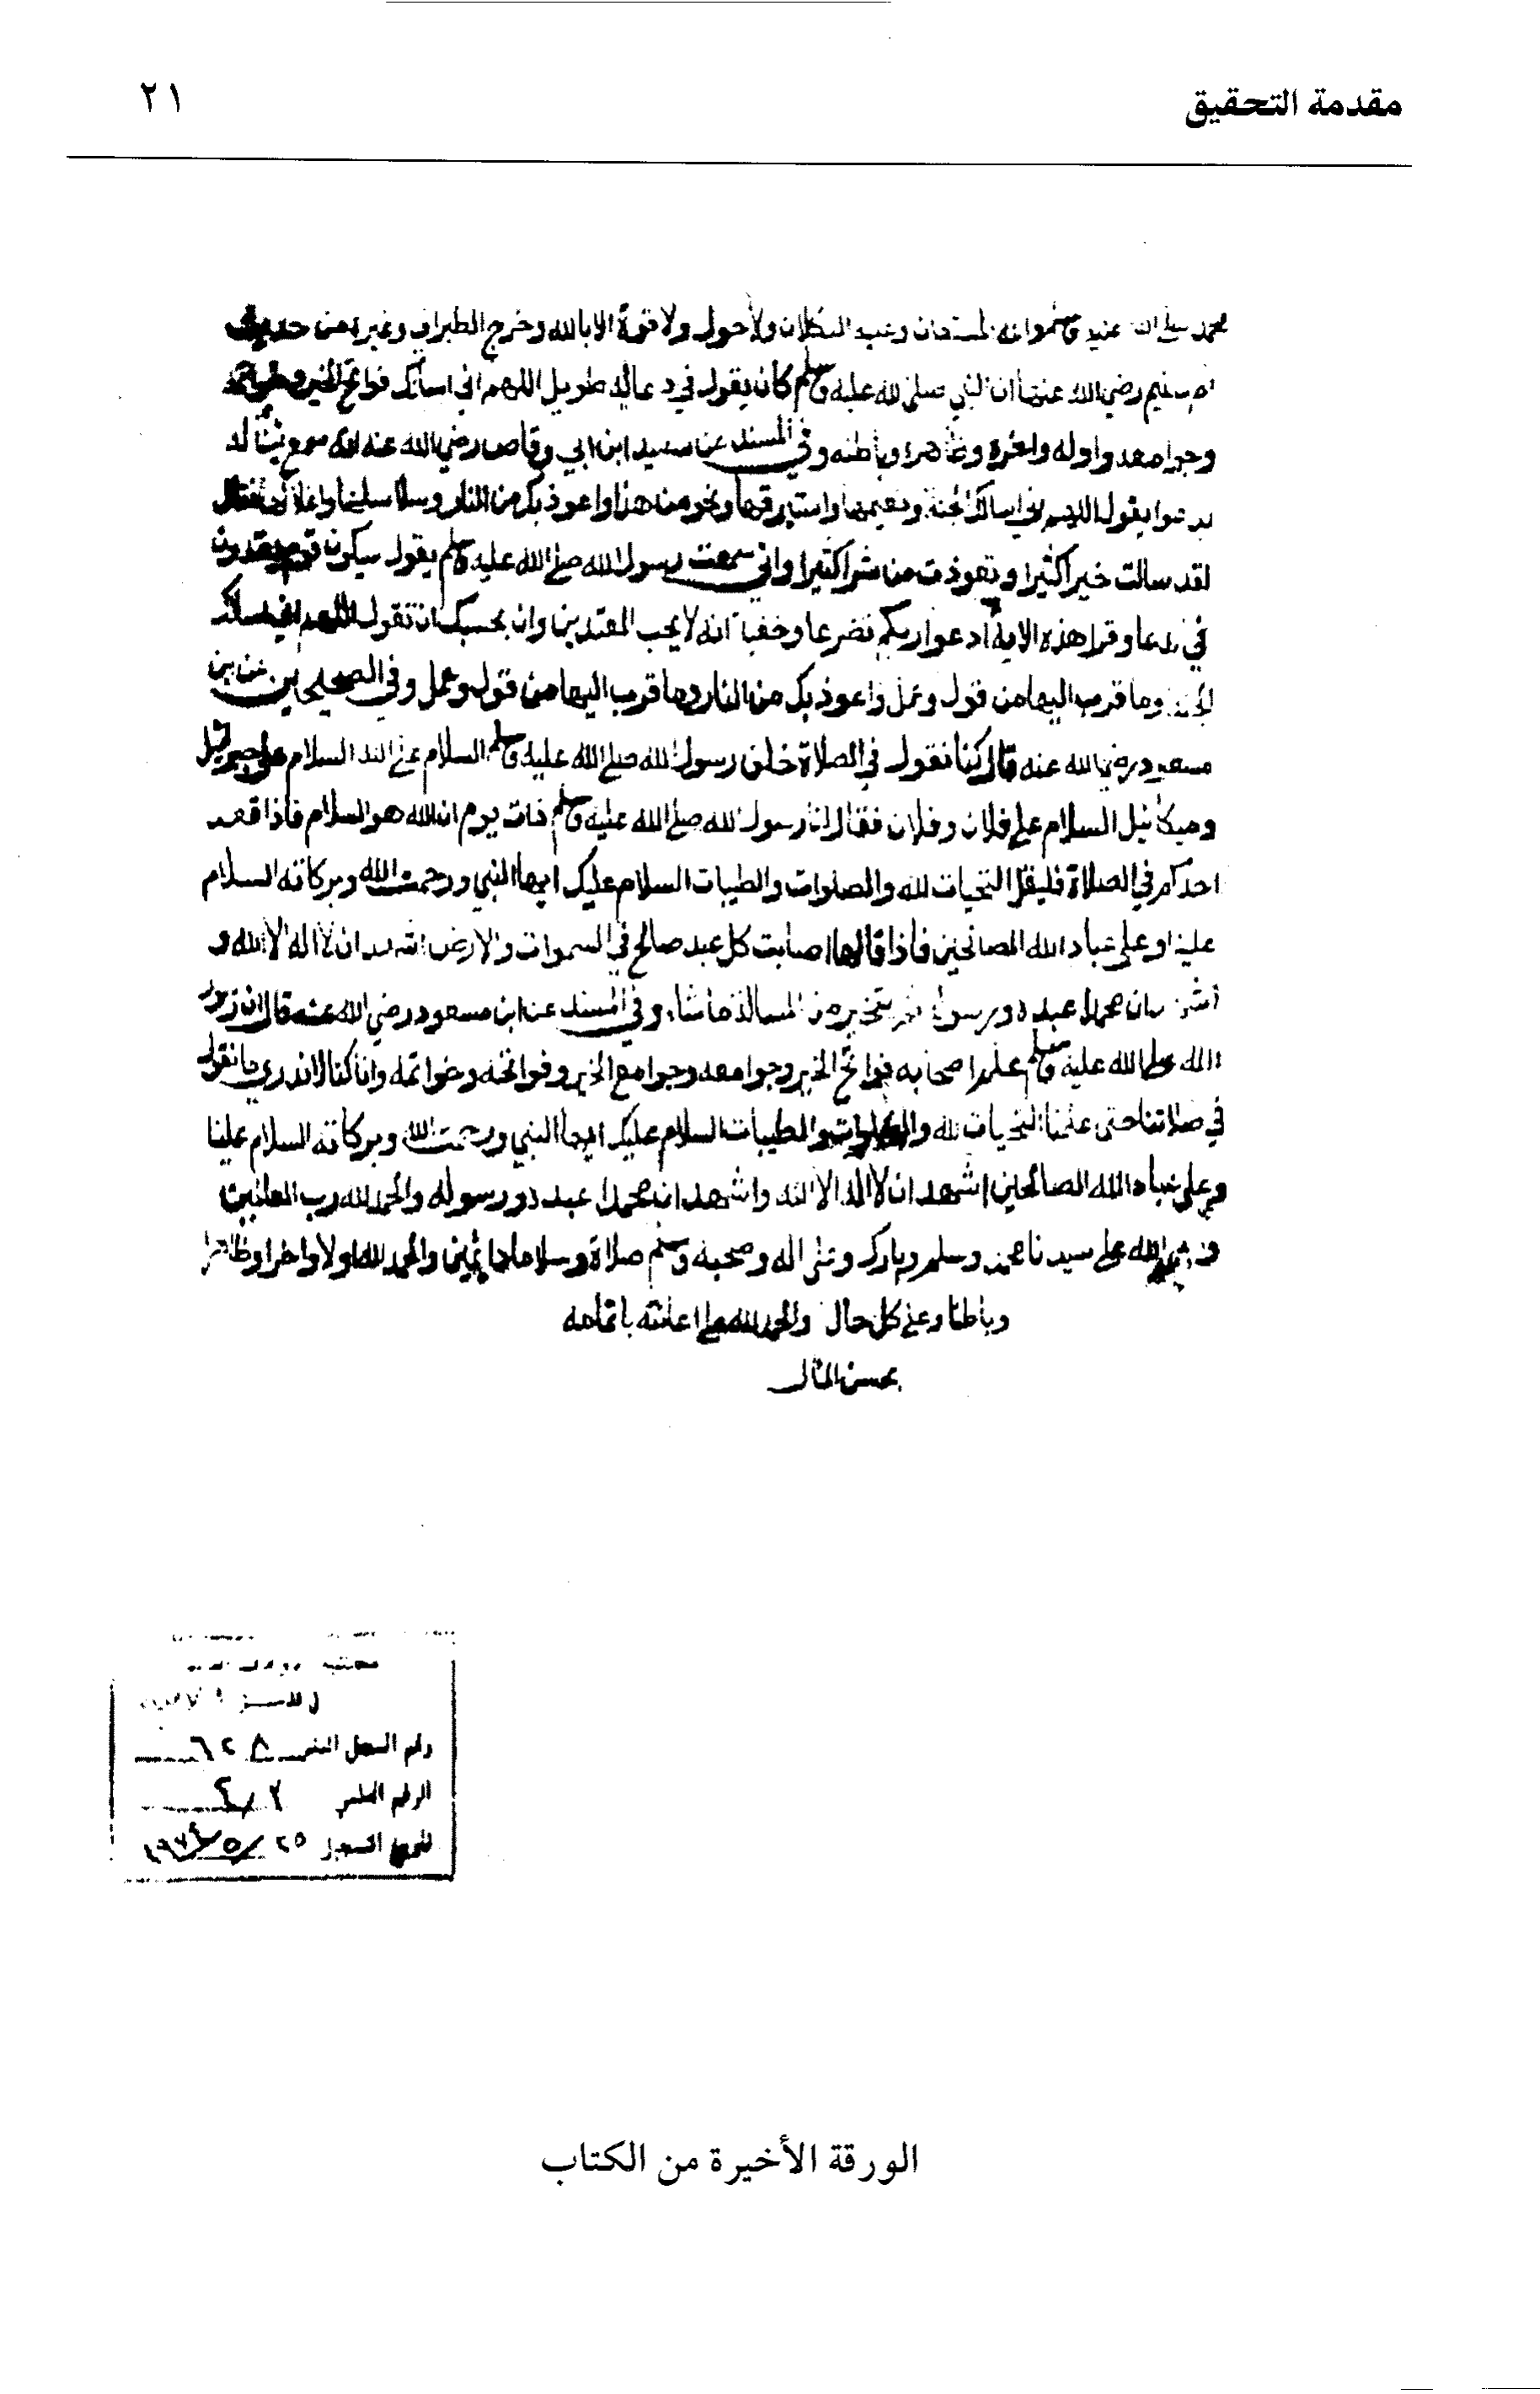 مقدمة التحقيق
٢١
محمد صلى الله عليه وسلم وانه المستعان وعليه التكلان ولاحول ولا قوة الا بالله وخرج الطبراني وغيره من حديث
ام سليم رضي الله عنها ان النبي صلى الله عليه وسلم كان يقول في دعا له طويل اللهم اني اسالك فواتح الخير وخواتمه
وجوامعه واوله واخره وظاهره وباطنه وفي المسند عن سعيد ابن ابي وقاص رضي الله عنه انه سمع ابنا له
يدعوا يقول اللهم اني اسالك الجنة ونعيمها واستبرقها ونحو من هذا واعوذ بك من النار وسلاسلها واغلالها فقال
لقد سالت خيرا كثيرا وتعوذت من شرا كثيرا واني سمعت رسول الله صلى الله عليه وسلم يقول سيكون قوم يعتدون
في الدعا وقرا هذه الاية ادعوا ربكم تضرعا وخفية انه لا يحب المعتدين وان بحسبك ان تقول اللهم اني اسالك
الجنة وما قرب اليها من قول وعمل واعوذ بك من النار وما قرب اليها من قول وعمل وفي الصحيحين عن ابن
مسعود رضي الله عنه قال كنا نقول في الصلاة خلف رسول الله صلى الله عليه وسلم السلام على الله السلام على جبريل
وميكائيل السلام على فلان وفلان فقال لنا رسول الله صلى الله عليه وسلم ذات يوم ان الله هو السلام فاذا قعد
احدكم في الصلاة فليقل التحيات لله والصلوات والطيبات السلام عليك ايها النبي ورحمت الله وبركاته السلام
علينا وعلى عباد الله الصالحين فاذا قالها اصابت كل عبد صالح في السموات والارض اشهد ان لا اله الا الله و
اشهد ان محمدا عبده ورسوله ثم يتخير من المسالة ما شاء وفي المسند عن ابن مسعود رضي الله عنه قال ان رسول
الله صلى الله عليه وسلم علم اصحابه فواتح الخير وجوامعه وجوامع الخير وفواتحه وخواتمه وانا كنا لا ندري ما نقول
في صلاتنا حتى علمنا التحيات لله والصلوات والطيبات السلام عليك ايها النبي ورحمت الله وبركاته السلام علينا
وعلى عباد الله الصالحين اشهد ان لا اله الا الله واشهد ان محمدا عبده ورسوله والحمد لله رب العالمين
وصلى الله على سيدنا محمد وسلم وبارك وعلى اله وصحبه وسلم صلاة وسلاما دائمين والحمد لله اولا واخرا وظاهرا
وباطنا وعلى كل حال والحمد لله على اعانته باتمامه
بحسن المال
مكتبة
رقم السجل ٦٢٨
الرقم
٢٥/٥/
الورقة الأخيرة من الكتاب